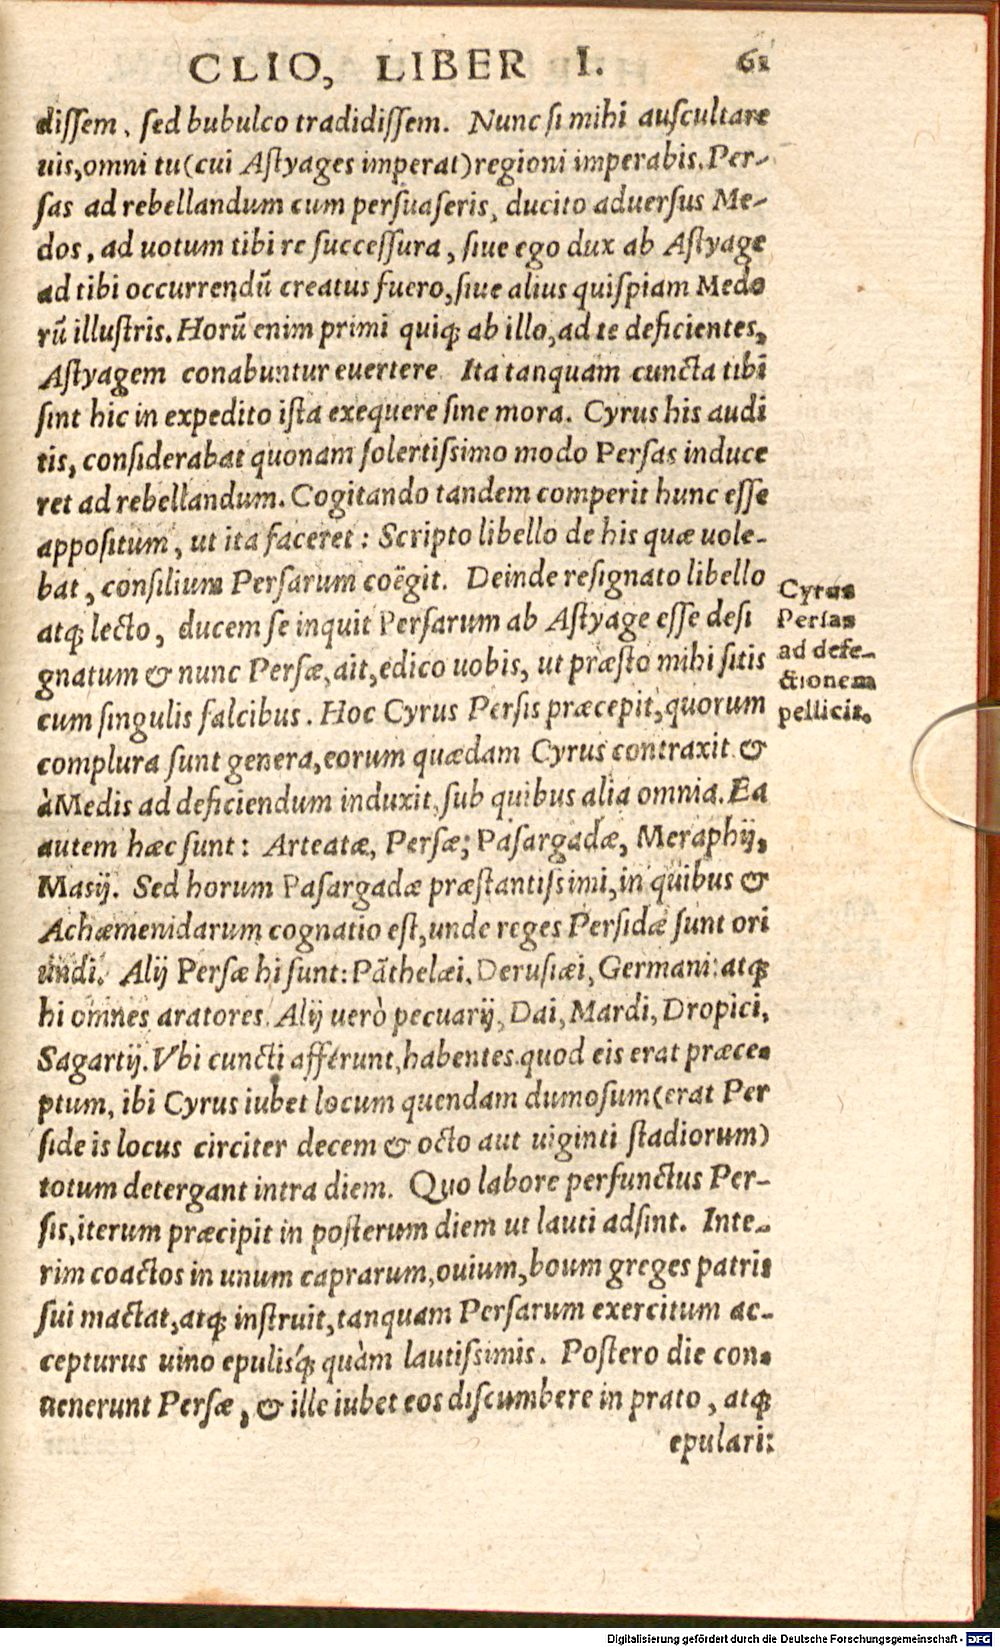 CLIO, LIBER I. 61
diſſem, ſed bubulco tradidiſſem. Nunc ſi mihi auſcultare
uis, omni tu (cui Aſtyages imperat) regioni imperabis. Per-
ſas ad rebellandum cum perſuaſeris, ducito aduerſus Me-
dos, ad uotum tibi re ſucceſſura, ſiue ego dux ab Aſtyage
ad tibi occurrendũ creatus fuero, ſiue alius quiſpiam Medo
rũ illuſtris. Horũ enim primi quiq; ab illo, ad te deficientes,
Aſtyagem conabuntur euertere Ita tanquam cuncta tibi
ſint hic in expedito iſta exequere ſine mora. Cyrus his audi
tis, conſiderabat quonam ſolertiſsimo modo Perſas induce
ret ad rebellandum. Cogitando tandem comperit hunc eſſe
appoſitum, ut ita faceret: Scripto libello de his quæ uole-
bat, conſilium Perſarum coëgit. Deinde reſignato libello
atq; lecto, ducem ſe inquit Perſarum ab Aſtyage eſſe deſi
gnatum & nunc Perſæ, ait, edico uobis, ut præſto mihi ſitis
cum ſingulis falcibus. Hoc Cyrus Perſis præcepit, quorum
complura ſunt genera, eorum quædam Cyrus contraxit &
à Medis ad deficiendum induxit, ſub quibus alia omnia. Ea
autem hæc ſunt: Arteatæ, Perſæ; Paſargadæ, Meraphij,
Masij. Sed horum Paſargadæ præſtantiſsimi, in quibus &
Achæmenidarum cognatio eſt, unde reges Perſidæ ſunt ori
undi. Alij Perſæ hi ſunt: Pãthelæi, Derusiæi, Germani: atq;
hi omnes aratores. Alij uerò pecuarij, Dai, Mardi, Dropici,
Sagartij. Vbi cuncti afférunt, habentes quod eis erat præce-
ptum, ibi Cyrus iubet locum quendam dumoſum (erat Per
ſide is locus circiter decem & octo aut uiginti ſtadiorum)
totum detergant intra diem. Quo labore perfunctus Per-
ſis, iterum præcipit in poſterum diem ut lauti adſint. Inte-
rim coactos in unum caprarum, ouium, boum greges patris
ſui mactat, atq; inſtruit, tanquam Perſarum exercitum ac-
cepturus uino epulisq́; quàm lautiſsimis. Poſtero die con-
uenerunt Perſæ, & ille iubet eos diſcumbere in prato, atq;
epulari:
Cyrus
Perſas
ad defe-
ctionem
pellicit.
Digitalisierung gefördert durch die Deutsche Forschungsgemeinschaft - DFG